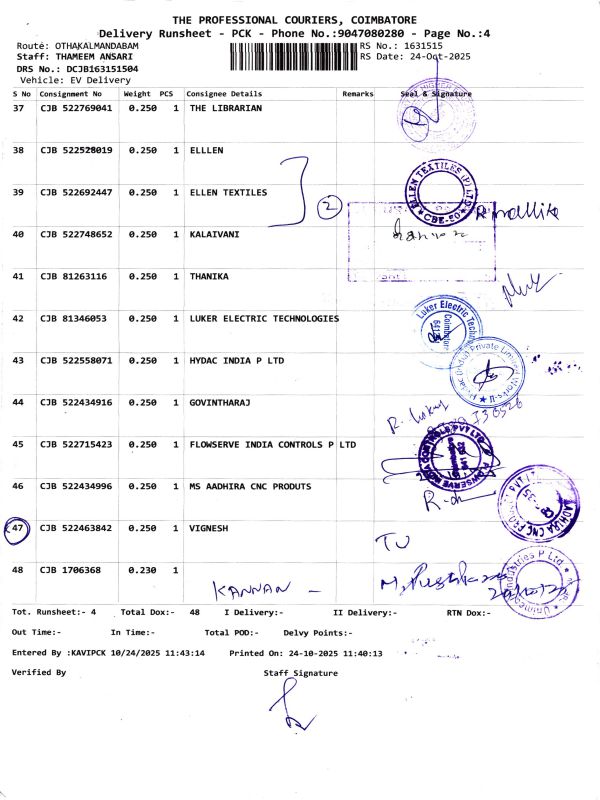 THE PROFESSIONAL COURIERS, COIMBATORE
Delivery Runsheet - PCK - Phone No.:9047080280 - Page No.:4
Route: OTHAKALMANDABAM RS No.: 1631515
Staff: THAMEEM ANSARI RS Date: 24-Oct-2025
DRS No.: DCJB163151504
Vehicle: EV Delivery
S No Consignment No Weight PCS Consignee Details Remarks Seal & Signature
37 CJB 522769041 0.250 1 THE LIBRARIAN
38 CJB 522528019 0.250 1 ELLLEN
39 CJB 522692447 0.250 1 ELLEN TEXTILES
2
ELLEN TEXTILES (P) LTD
CBE-50
R. Mallika
40 CJB 522748652 0.250 1 KALAIVANI
41 CJB 81263116 0.250 1 THANIKA
42 CJB 81346053 0.250 1 LUKER ELECTRIC TECHNOLOGIES
Luker Electric
Coimbatore
43 CJB 522558071 0.250 1 HYDAC INDIA P LTD
Private Limited
44 CJB 522434916 0.250 1 GOVINTHARAJ
45 CJB 522715423 0.250 1 FLOWSERVE INDIA CONTROLS P LTD
46 CJB 522434996 0.250 1 MS AADHIRA CNC PRODUTS
AADHIRA CNC
47 CJB 522463842 0.250 1 VIGNESH
48 CJB 1706368 0.230 1
KANNAN -
Industries P Ltd
Tot. Runsheet:- 4 Total Dox:- 48 I Delivery:- II Delivery:- RTN Dox:-
Out Time:- In Time:- Total POD:- Delvy Points:-
Entered By :KAVIPCK 10/24/2025 11:43:14 Printed On: 24-10-2025 11:40:13
Verified By Staff Signature